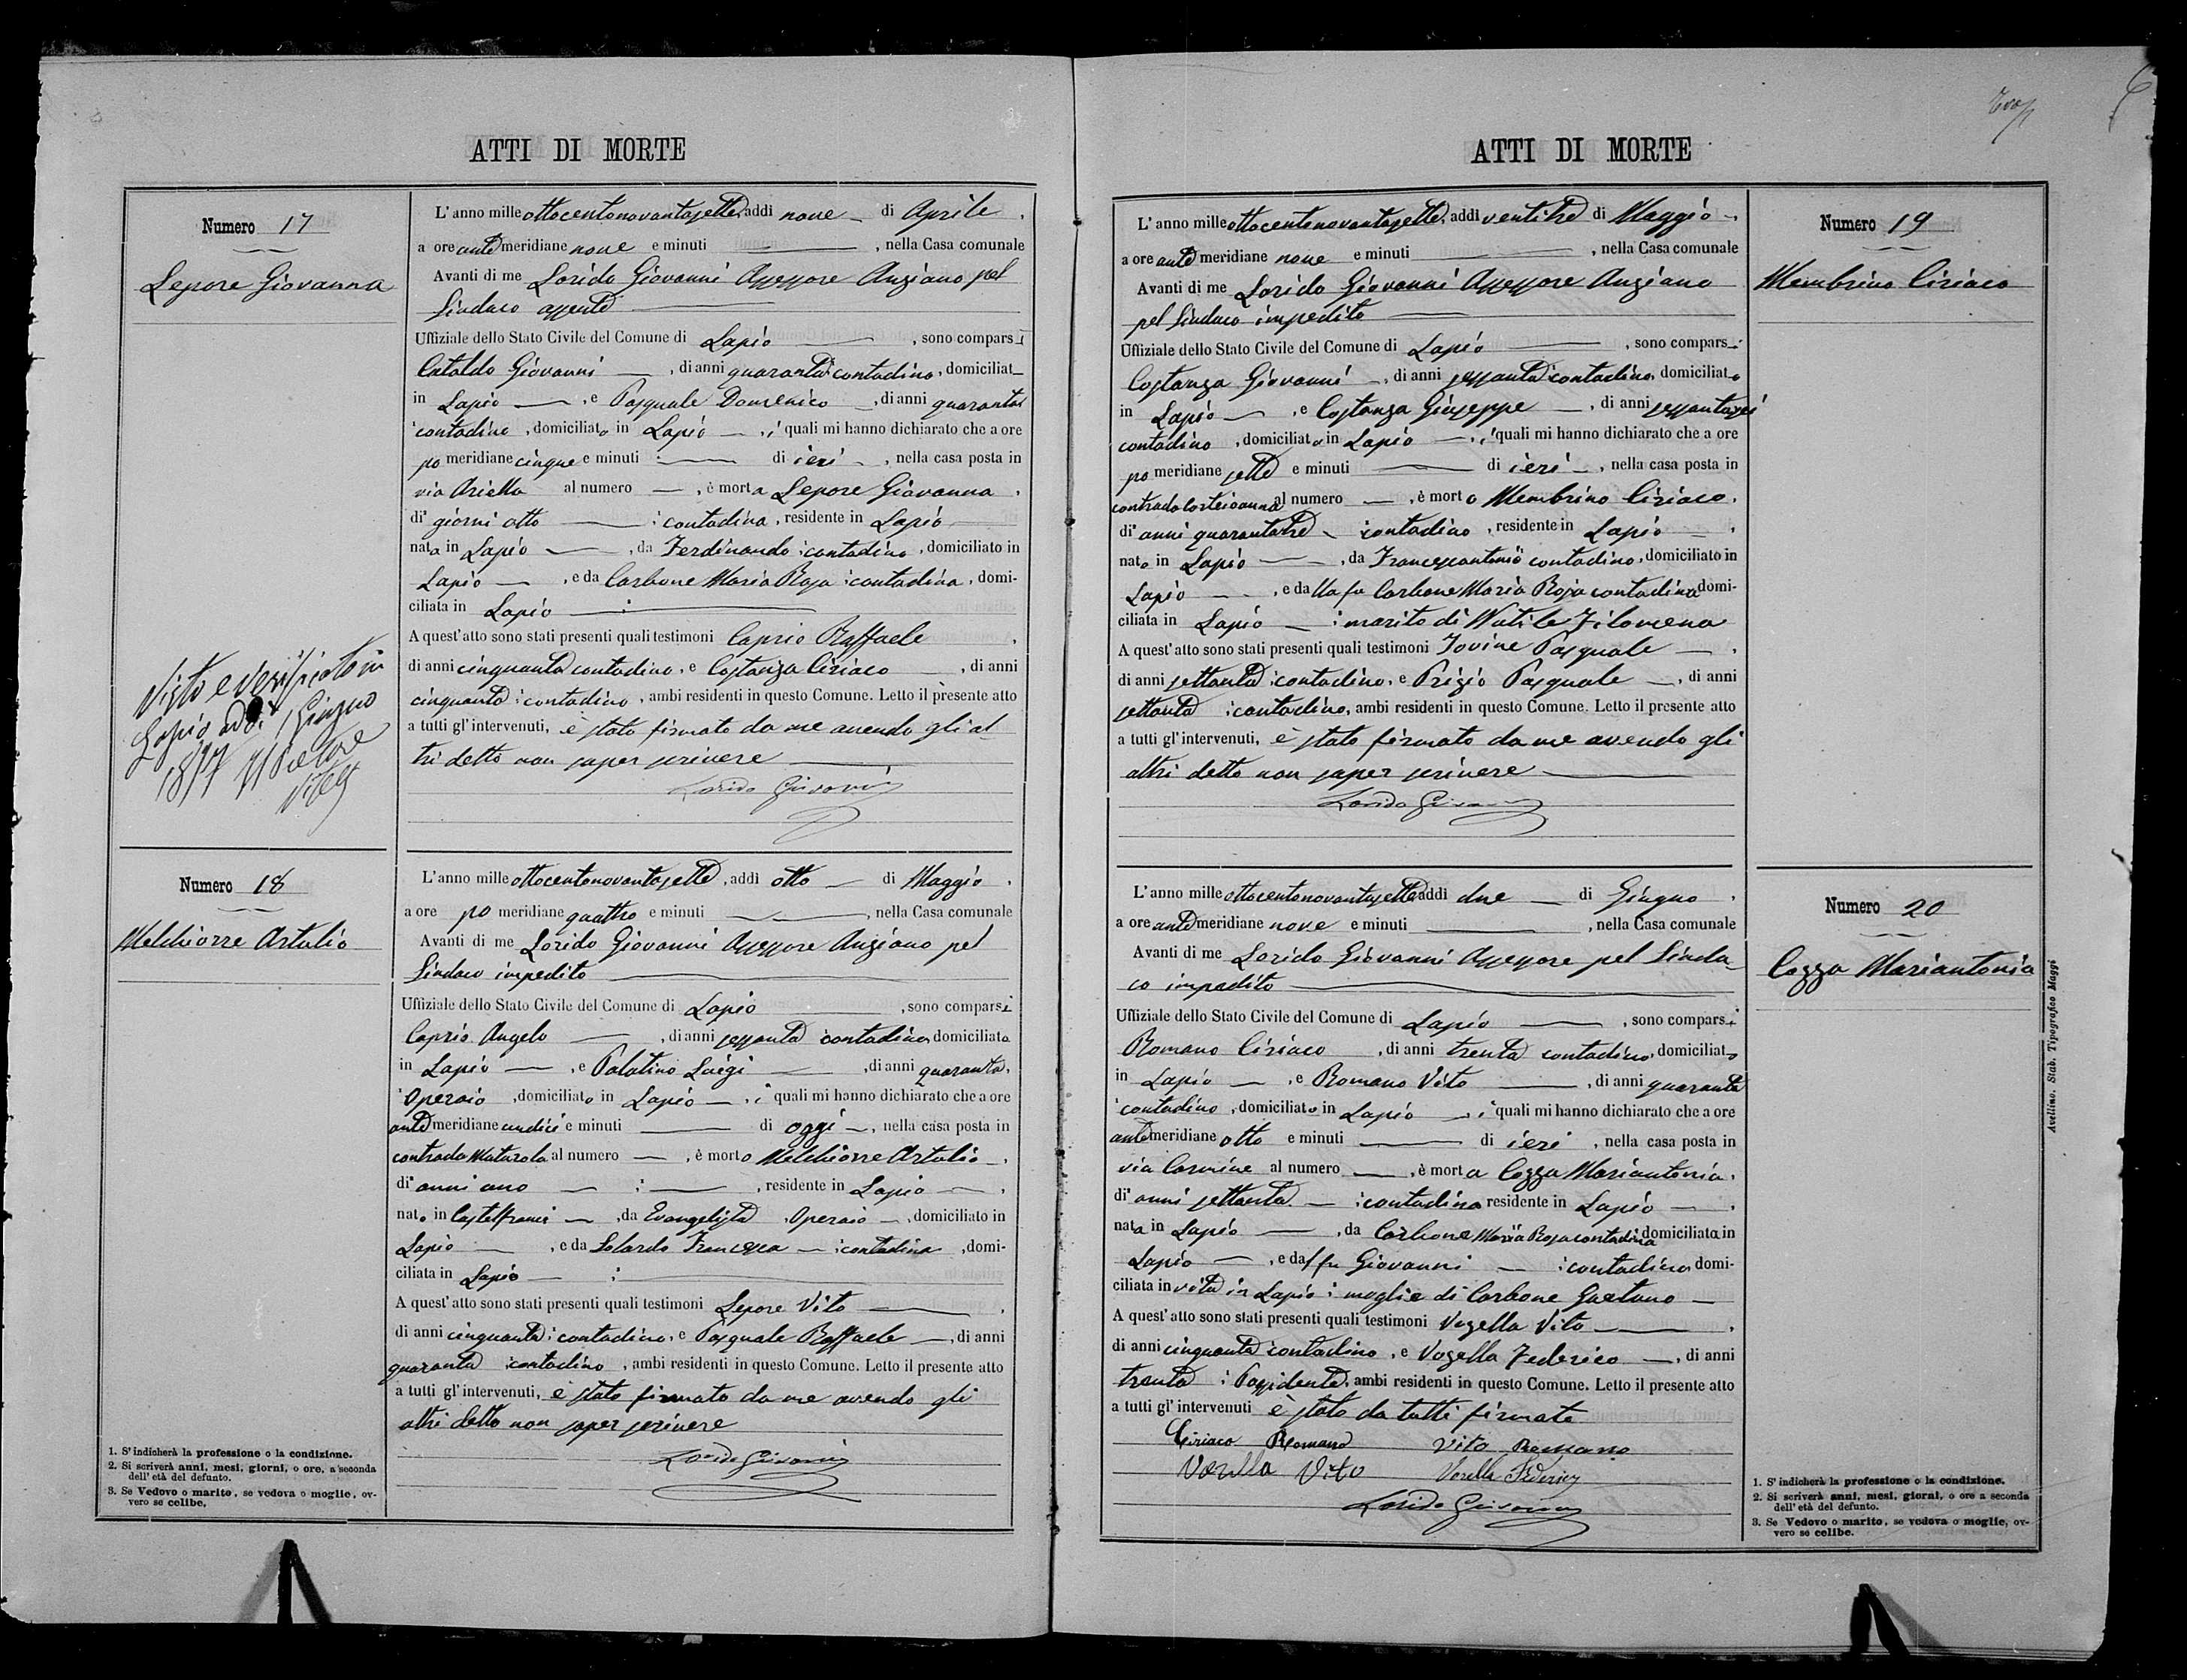 ATTI DI MORTE
Numero 17
Lepore Giovanna
L'anno mille ottocentonovantasette, addì nove di Aprile,
a ore ante meridiane nove e minuti , nella Casa comunale
Avanti di me Lorido Giovanni Assessore Anziano pel
Sindaco assente
Uffiziale dello Stato Civile del Comune di Lapio , sono comparsi
Cataldo Giovanni , di anni quaranta contadino, domiciliat
in Lapio , e Pasquale Domenico , di anni quaranta
contadino , domiciliato in Lapio , i quali mi hanno dichiarato che a ore
po meridiane cinque e minuti di ieri , nella casa posta in
via Ariella al numero , è morta Lepore Giovanna ,
di giorni otto contadina , residente in Lapio
nata in Lapio , da Ferdinando contadino , domiciliato in
Lapio , e da Carbone Maria Rosa contadina , domi-
ciliata in Lapio
A quest'atto sono stati presenti quali testimoni Caprio Raffaele ,
di anni cinquanta contadino, e Costanza Ciriaco , di anni
cinquanta contadino , ambi residenti in questo Comune. Letto il presente atto
a tutti gl'intervenuti, è stato firmato da me avendo gli al
tri detto non saper scrivere
Lorido Giovanni
Visto e verificato in
Lapio addì 1 Giugno
1897 Il Pretore
Numero 18
Melchiorre Astulio
L'anno mille ottocentonovantasette, addì otto di Maggio ,
a ore po meridiane quattro e minuti , nella Casa comunale
Avanti di me Lorido Giovanni Assessore Anziano pel
Sindaco impedito
Uffiziale dello Stato Civile del Comune di Lapio , sono comparsi
Caprio Angelo , di anni sessanta contadino domiciliato
in Lapio , e Palatino Luigi , di anni quaranta,
Operaio , domiciliato in Lapio , i quali mi hanno dichiarato che a ore
ante meridiane undici e minuti di oggi , nella casa posta in
contrada Maturola al numero , è morto Melchiorre Astulio ,
di anni uno , residente in Lapio ,
nato in Castelfranci , da Evangelista , Operaio , domiciliato in
Lapio , e da Solardo Francesca contadina , domi-
ciliata in Lapio
A quest'atto sono stati presenti quali testimoni Lepore Vito ,
di anni cinquanta contadino, e Pasquale Raffaele , di anni
quaranta contadino , ambi residenti in questo Comune. Letto il presente atto
a tutti gl'intervenuti, è stato firmato da me avendo gli
altri detto non saper scrivere
Lorido Giovanni
1. S'indicherà la professione o la condizione.
2. Si scriverà anni, mesi, giorni, o ore, a seconda
dell'età del defunto.
3. Se Vedovo o marito, se vedova o moglie, ov-
vero se celibe.
ATTI DI MORTE
Numero 19
Membrino Ciriaco
L'anno mille ottocentonovantasette, addì ventitre di Maggio ,
a ore ante meridiane nove e minuti , nella Casa comunale
Avanti di me Lorido Giovanni Assessore Anziano
pel Sindaco impedito
Uffiziale dello Stato Civile del Comune di Lapio , sono comparsi
Costanza Giovanni , di anni sessanta contadino, domiciliato
in Lapio , e Costanza Giuseppe , di anni sessantasei
contadino , domiciliato in Lapio , i quali mi hanno dichiarato che a ore
po meridiane sette e minuti di ieri , nella casa posta in
contrada al numero , è morto Membrino Ciriaco,
di anni quarantatre contadino , residente in Lapio ,
nato in Lapio , da Francescantonio contadino, domiciliato in
Lapio , e da lla fu Carbone Maria Rosa contadina domi-
ciliata in Lapio marito di Nutile Filomena
A quest'atto sono stati presenti quali testimoni Iovine Pasquale ,
di anni settanta contadino, e Prizio Pasquale , di anni
settanta contadino, ambi residenti in questo Comune. Letto il presente atto
a tutti gl'intervenuti, è stato firmato da me avendo gli
altri detto non saper scrivere
Lorido Giovanni
Numero 20
Cozza Mariantonia
L'anno mille ottocentonovantasette addì due di Giugno ,
a ore ante meridiane nove e minuti , nella Casa comunale
Avanti di me Lorido Giovanni Assessore pel Sinda
co impedito
Uffiziale dello Stato Civile del Comune di Lapio , sono comparsi
Romano Ciriaco , di anni trenta contadino, domiciliato
in Lapio , e Romano Vito , di anni quaranta
contadino , domiciliato in Lapio , i quali mi hanno dichiarato che a ore
ante meridiane otto e minuti di ieri , nella casa posta in
via Carmine al numero , è morta Cozza Mariantonia ,
di anni settanta contadina residente in Lapio ,
nata in Lapio , da Carbone Maria Rosa contadina domiciliata in
Lapio , e da l fu Giovanni contadino domi-
ciliata in vita in Lapio moglie di Carbone Gaetano
A quest'atto sono stati presenti quali testimoni Vozella Vito ,
di anni cinquanta contadino , e Vozella Federico , di anni
trenta Possidente, ambi residenti in questo Comune. Letto il presente atto
a tutti gl'intervenuti è stato da tutti firmato
Ciriaco Romano Vito Romano
Vozella Vito Vozella Federico
Lorido Giovanni
1. S'indicherà la professione o la condizione.
2. Si scriverà anni, mesi, giorni, o ore a seconda
dell'età del defunto.
3. Se Vedovo o marito, se vedova o moglie, ov-
vero se celibe.
Avellino. Stab. Tipografico Maggi